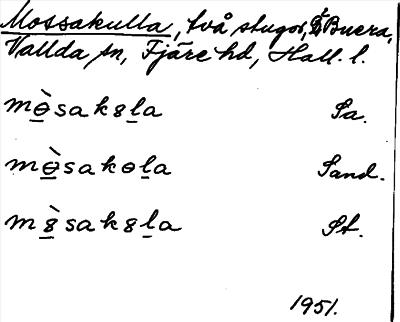 Mossakulla, två stugor, Buera,
Vallda sn, Fjäre hd, Hall. l.
mɵ̀sak8la Sa.
mɵ̀sakɵla Sand.
m8̀sak8la St.
1951.